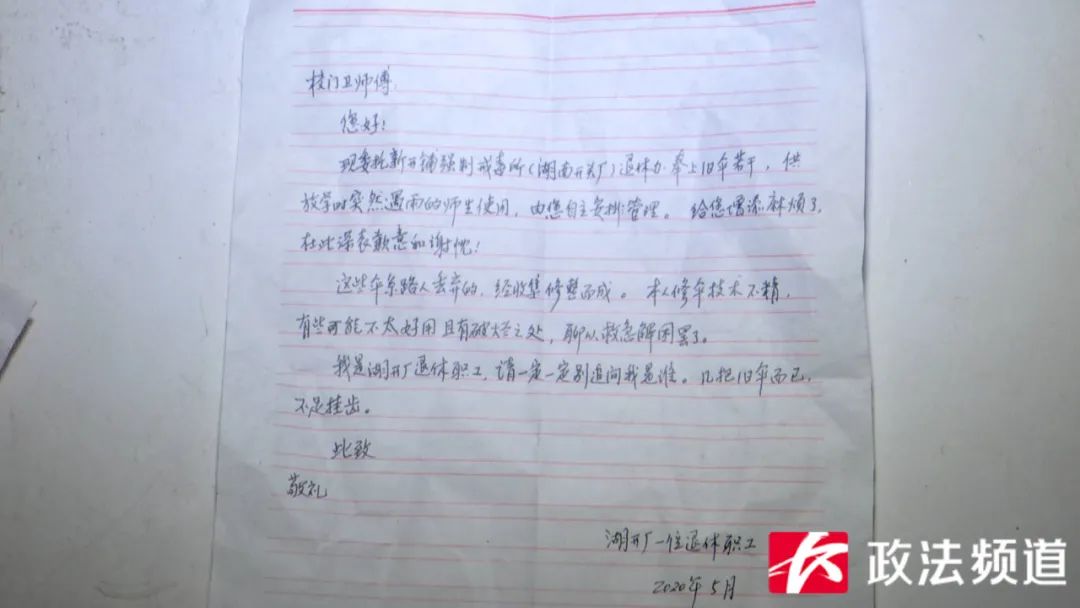 校门卫师傅:
您好!
现委托新开铺强制戒毒所(湖南开关厂)退休办奉上旧伞若干,供
放学时突然遇雨的师生使用,由您自主安排管理。给您增添麻烦了,
在此深表歉意和谢忱!
这些伞系路人丢弃的,经收集修整而成。本人修伞技术不精,
有些可能不太好用且有破烂之处,聊以救急解困罢了。
我是湖开厂退休职工,请一定一定别追问我是谁。几把旧伞而已,
不足挂齿。
此致
敬礼
湖开厂一位退休职工
2020年5月
政法频道